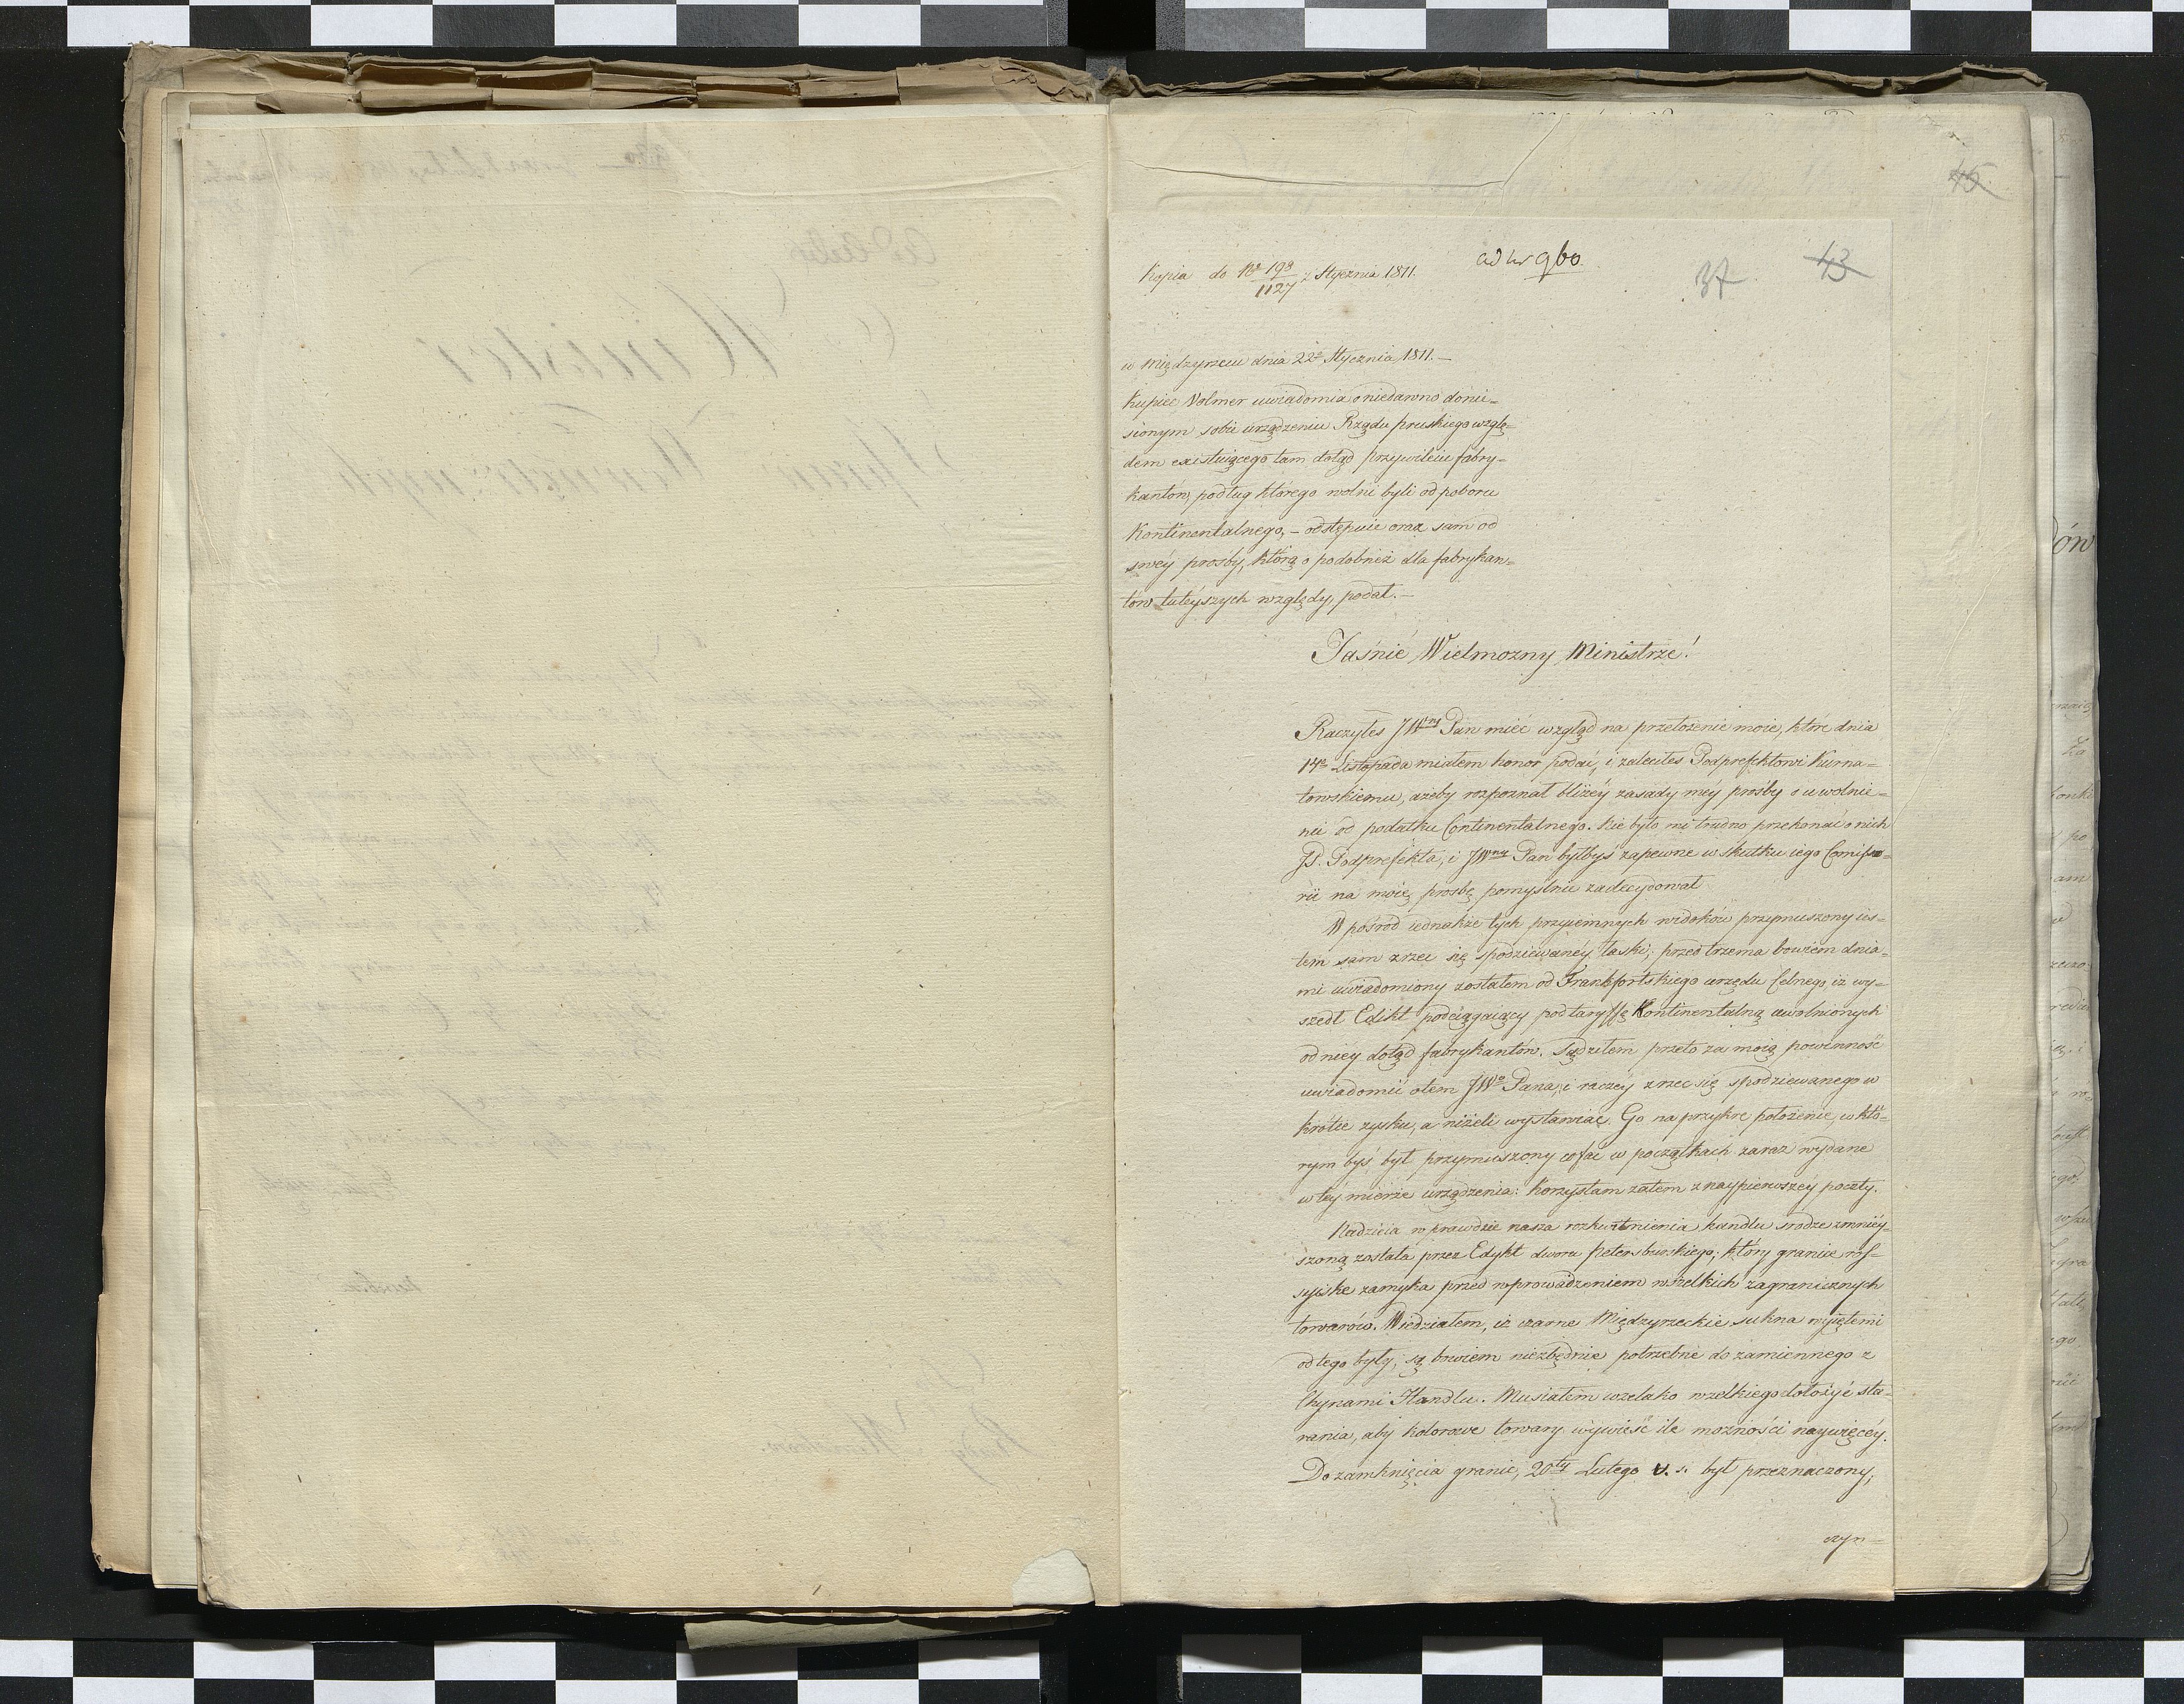 45
Kopia do No 198/1127 z Stycznia 1811.
ad Nr 960
37
43
w Międzyrzeczu dnia 22º Stycznia 1811. —
Kupiec Volmer uwiadomia o niedawno donie=
sionym sobie urządzeniu Rządu pruskiego wzglę=
dem existuiącego tam dotąd przywileiu fabry=
kantów, podług którego wolni byli od poboru
Kontinentalnego, – odstępuie oraz sam od
swéy prośby, którą o podobnież dla fabrykan=
tów tuteyszych względy, podał. —
Jaśnie Wielmożny Ministrze!
Raczyłeś JWny Pan mieć wzgląd na przełożenie moie, które dnia
14º Listopada miałem honor podać, i zaleciłeś Podprefektowi Kurna=
towskiemu, ażeby rozpoznał bliżéy zasady méy prośby o uwolnie=
nie od podatku Continentalnego. Nie było mi trudno przekonać o nich
JP. Podprefekta, i JWny Pan byłbyś zapewne w skutku iego Comisso=
rii na moię prosbę pomyślnie zadecydował
W pośród iednakże tych przyiemnych widoków przymuszony ies=
tem sam zrzec się spodziewanéy łaski; przed trzema bowiem dnia=
mi uwiadomiony zostałem od Frankfortskiego urzędu Celnego iż wy=
szedł Edikt podciągaiący pod taryffę Kontinentalną uwolnionych
od niey dotąd fabrykantów. Sądziłem przeto za moią powinność
uwiadomić o tem JWo Pana, i raczéy zrzec się spodziewanego w
krótce zysku, a niżeli wystawiać Go na przykre położenie, w któ=
rym byś był przymuszony cofać w początkach zaraz wydane
w téy mierze urządzenia: korzystam zatem z naypierwszey poczty.
Nadzieia w prawdzie nasza rozkwitnienia handlu srodze zmniéy=
szoną została przez Edykt dworu Petersburskiego; który granice ros=
syiskie zamyka przed wprowadzeniem wszelkich zagranicznych
towarów. Wiedziałem, iż czarne Międzyrzeckie sukna wyiętemi
od tego były; są bowiem niezbędnie potrzebne do zamiennego z
Chynami Handlu. Musiałem wszelako wszelkiego dołożyć sta=
rania, aby kolorowe towary wywieść ile możności naywięcéy.
Do zamknięcia granic, 20ty Lutego v. s. był przeznaczony;
czyn=